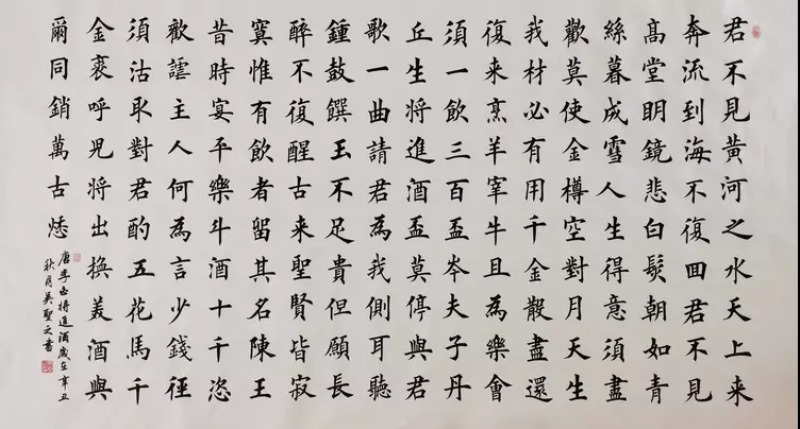 君不見黃河之水天上来
奔流到海不復囬君不見
髙堂明鏡悲白髮朝如青
絲暮成雪人生得意須盡
歡莫使金樽空對月天生
我材必有用千金散盡還
復来烹羊宰牛且為樂會
須一飲三百盃岑夫子丹
丘生將進酒盃莫停與君
歌一曲請君為我側耳聽
鍾鼓饌玉不足貴但願長
醉不復醒古来聖賢皆寂
寞惟有飲者留其名陳王
昔時宴平樂斗酒十千恣
歡謔主人何為言少錢徑
須沽取對君酌五花馬千
金裘呼児將出換美酒與
爾同銷萬古愁
唐李白將進酒歲在辛丑
秋月吳聖之書